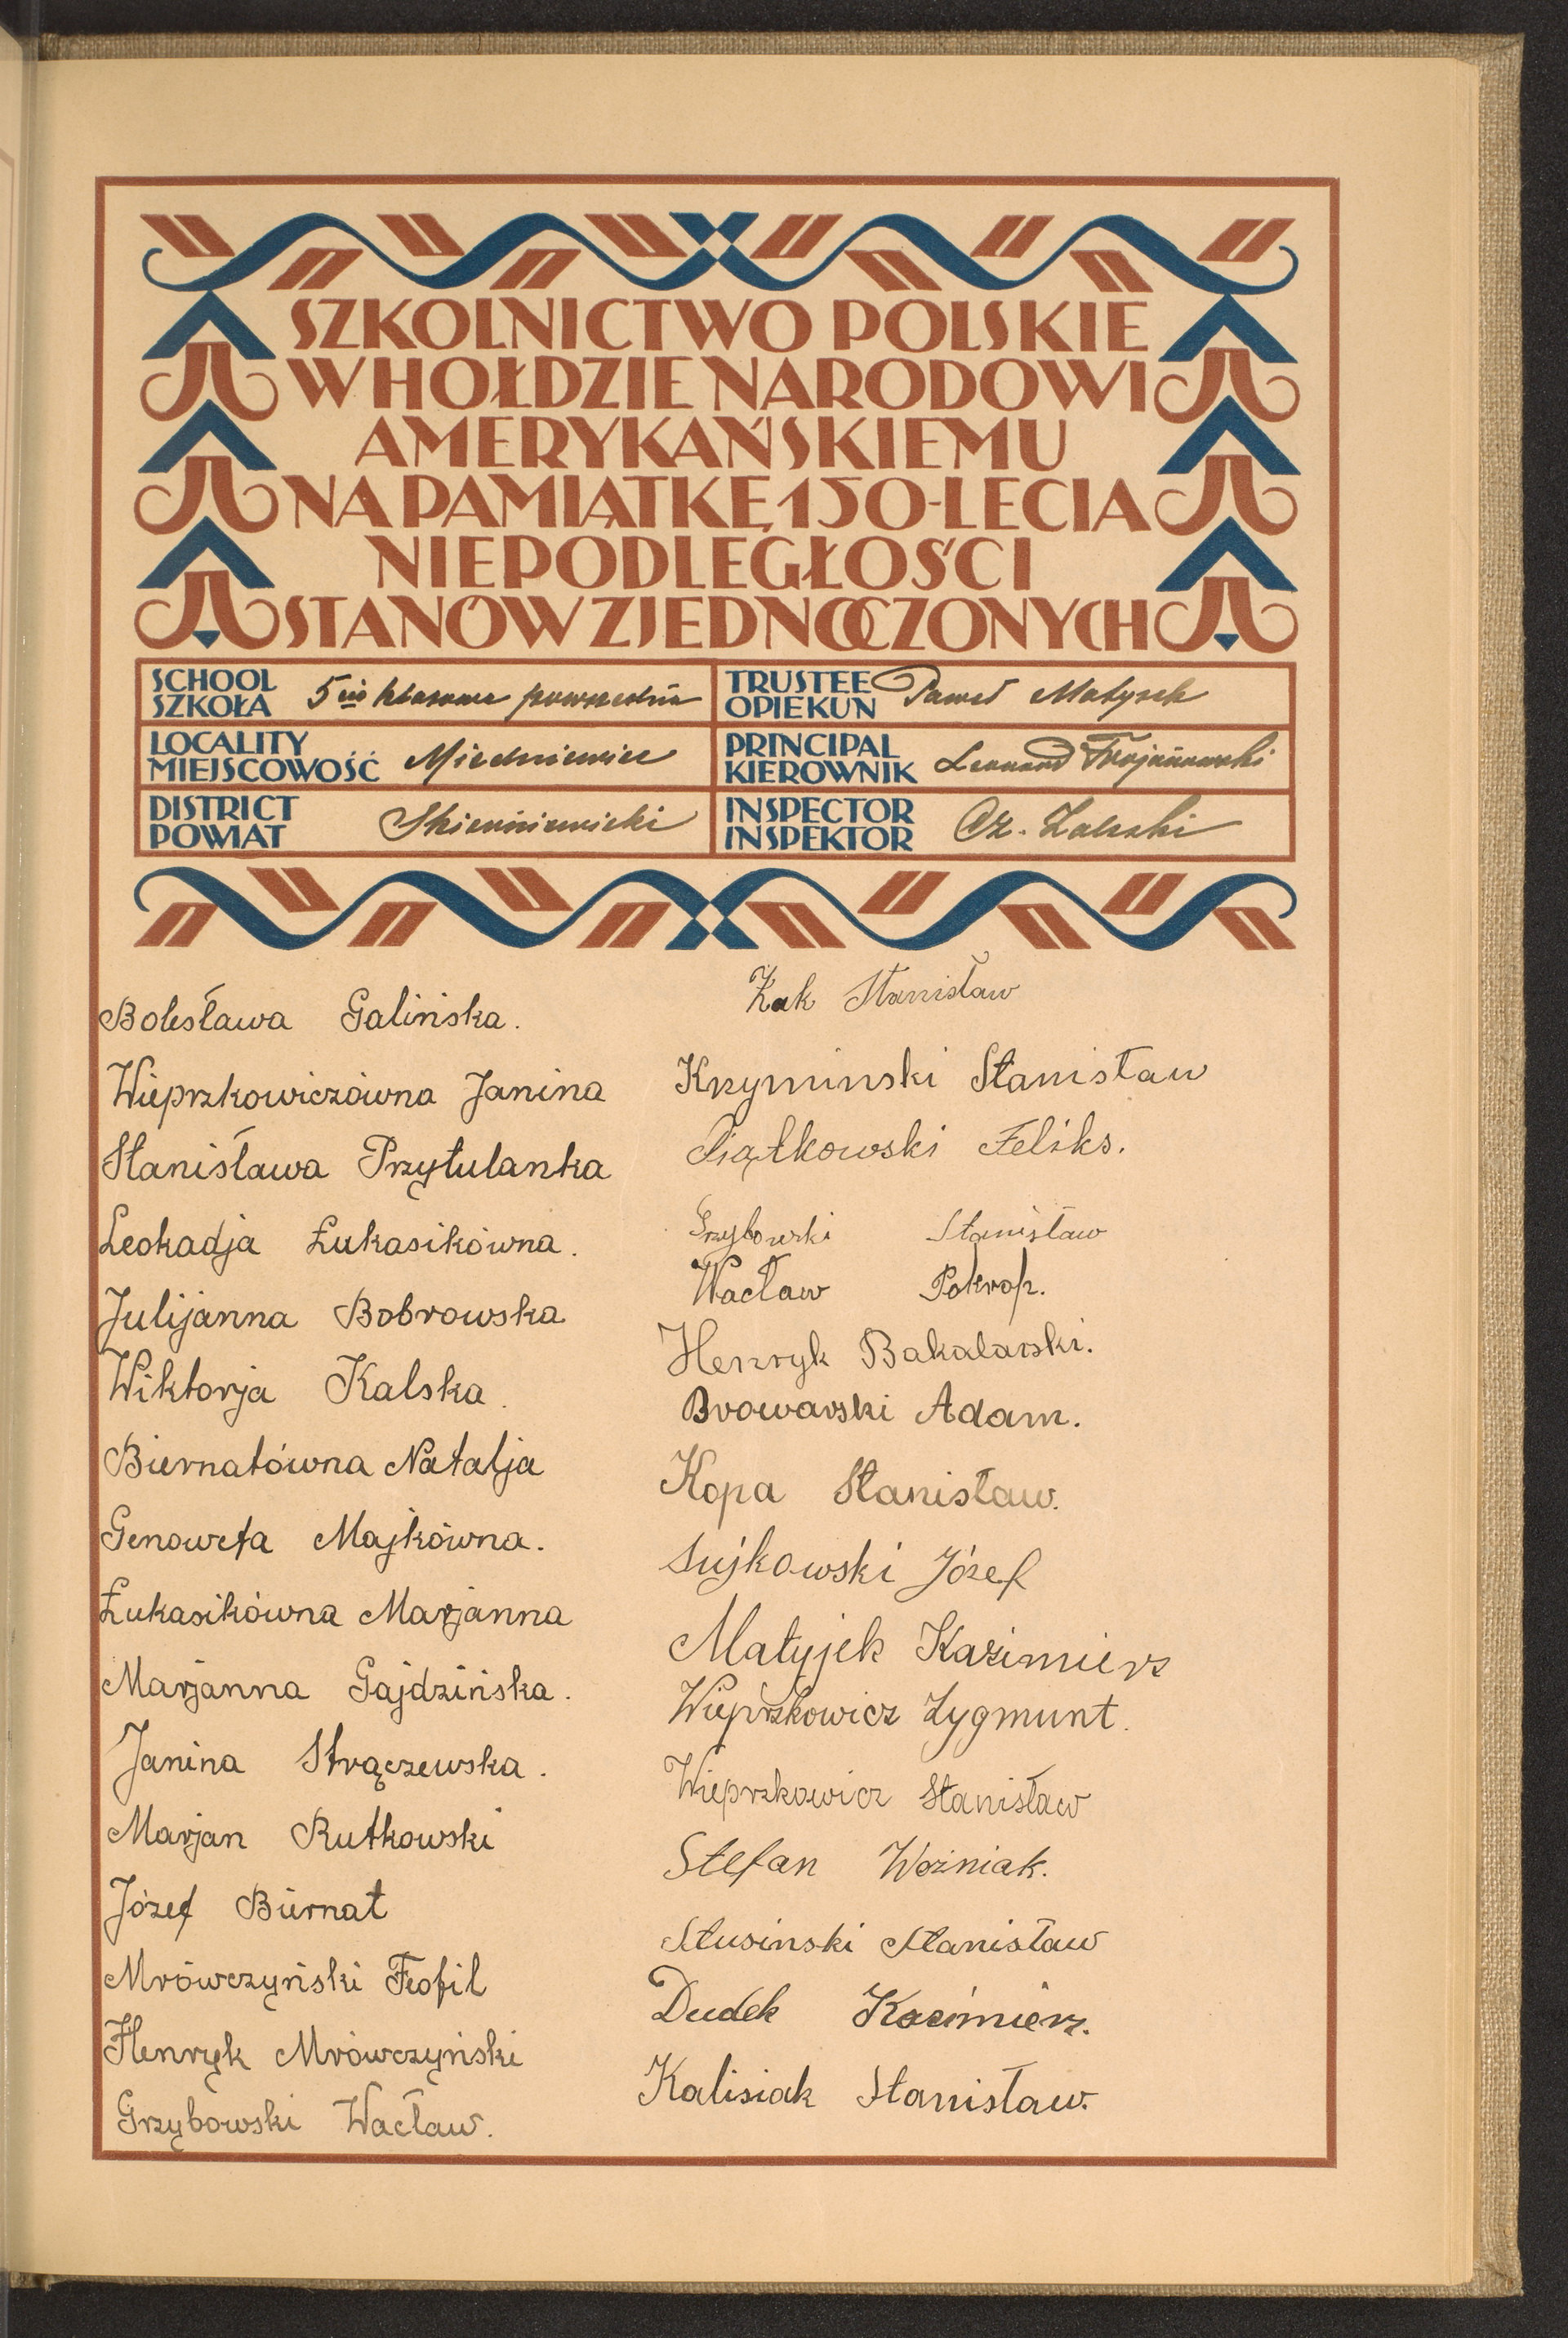 SZKOLNICTWO POLSKIE
W HOŁDZIE NARODOWI
AMERYKAŃSKIEMU
NA PAMIĄTKĘ 150-LECIA
NIEPODLEGŁOŚCI
STANÓW ZJEDNOCZONYCH
SCHOOL
SZKOŁA 5cio klasowa powszechna
TRUSTEE
OPIEKUN Paweł Matysek
LOCALITY
MIEJSCOWOŚĆ Miedniewice
PRINCIPAL
KIEROWNIK Leonard Trojanowski
DISTRICT
POWIAT Skierniewicki
INSPECTOR
INSPEKTOR Cz. Zaleski
Bolesława Galińska.
Wieprzkowiczówna Janina
Stanisława Przytulanka
Leokadja Łukasikówna.
Julijanna Bobrowska
Wiktorja Kalska.
Biernatówna Natalja
Genowefa Majkówna.
Łukasikówna Marjanna
Marjanna Gajdzińska.
Janina Strączewska.
Marjan Rutkowski
Józef Biernat
Mrówczyński Teofil
Henryk Mrówczyński
Grzybowski Wacław.
Żak Stanisław
Krzyminski Stanisław
Piątkowski Feliks.
Grzybowski Stanisław
Wacław Pokrop.
Henryk Bakalarski.
Browarski Adam.
Kopa Stanisław.
Sujkowski Józef
Matyjek Kazimierz
Wieprzkowicz Zygmunt.
Wieprzkowicz Stanisław
Stefan Woźniak.
Stusinski Stanisław
Dudek Kazimierz.
Kalisiak Stanisław.